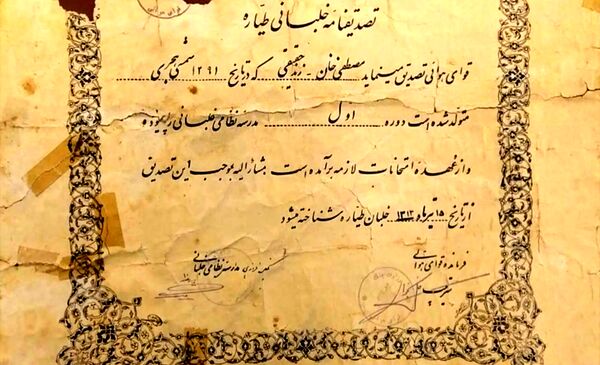 تصدیقنامه خلبانی طیاره
قوای هوائی تصدیق مینماید مصطفی خان - زند حقیقی که در تاریخ ۱۲۹۱ شمسی هجری
متولد شده است دوره اول مدرسه نظامی خلبانی را پیموده
و از عهده امتحانات لازمه برآمده است بشارالیه بموجب این تصدیق
از تاریخ ۱۵ تیر ماه ۱۳۱۲ خلبان طیاره شناخته میشود
فرمانده قوای هوائی
مدرسه نظامی خلبانی
سرتیپ